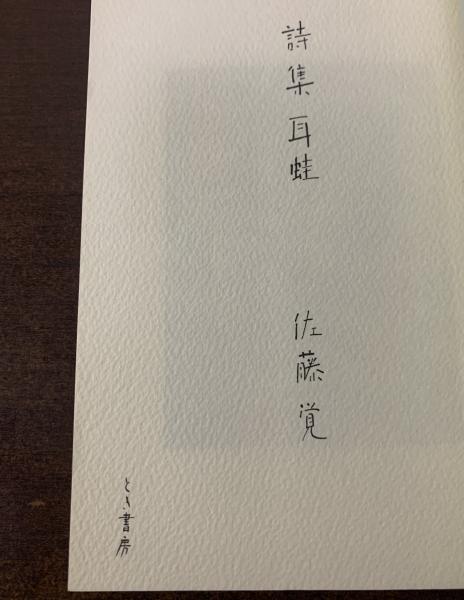 詩集 耳蛙
佐藤覚
とき書房